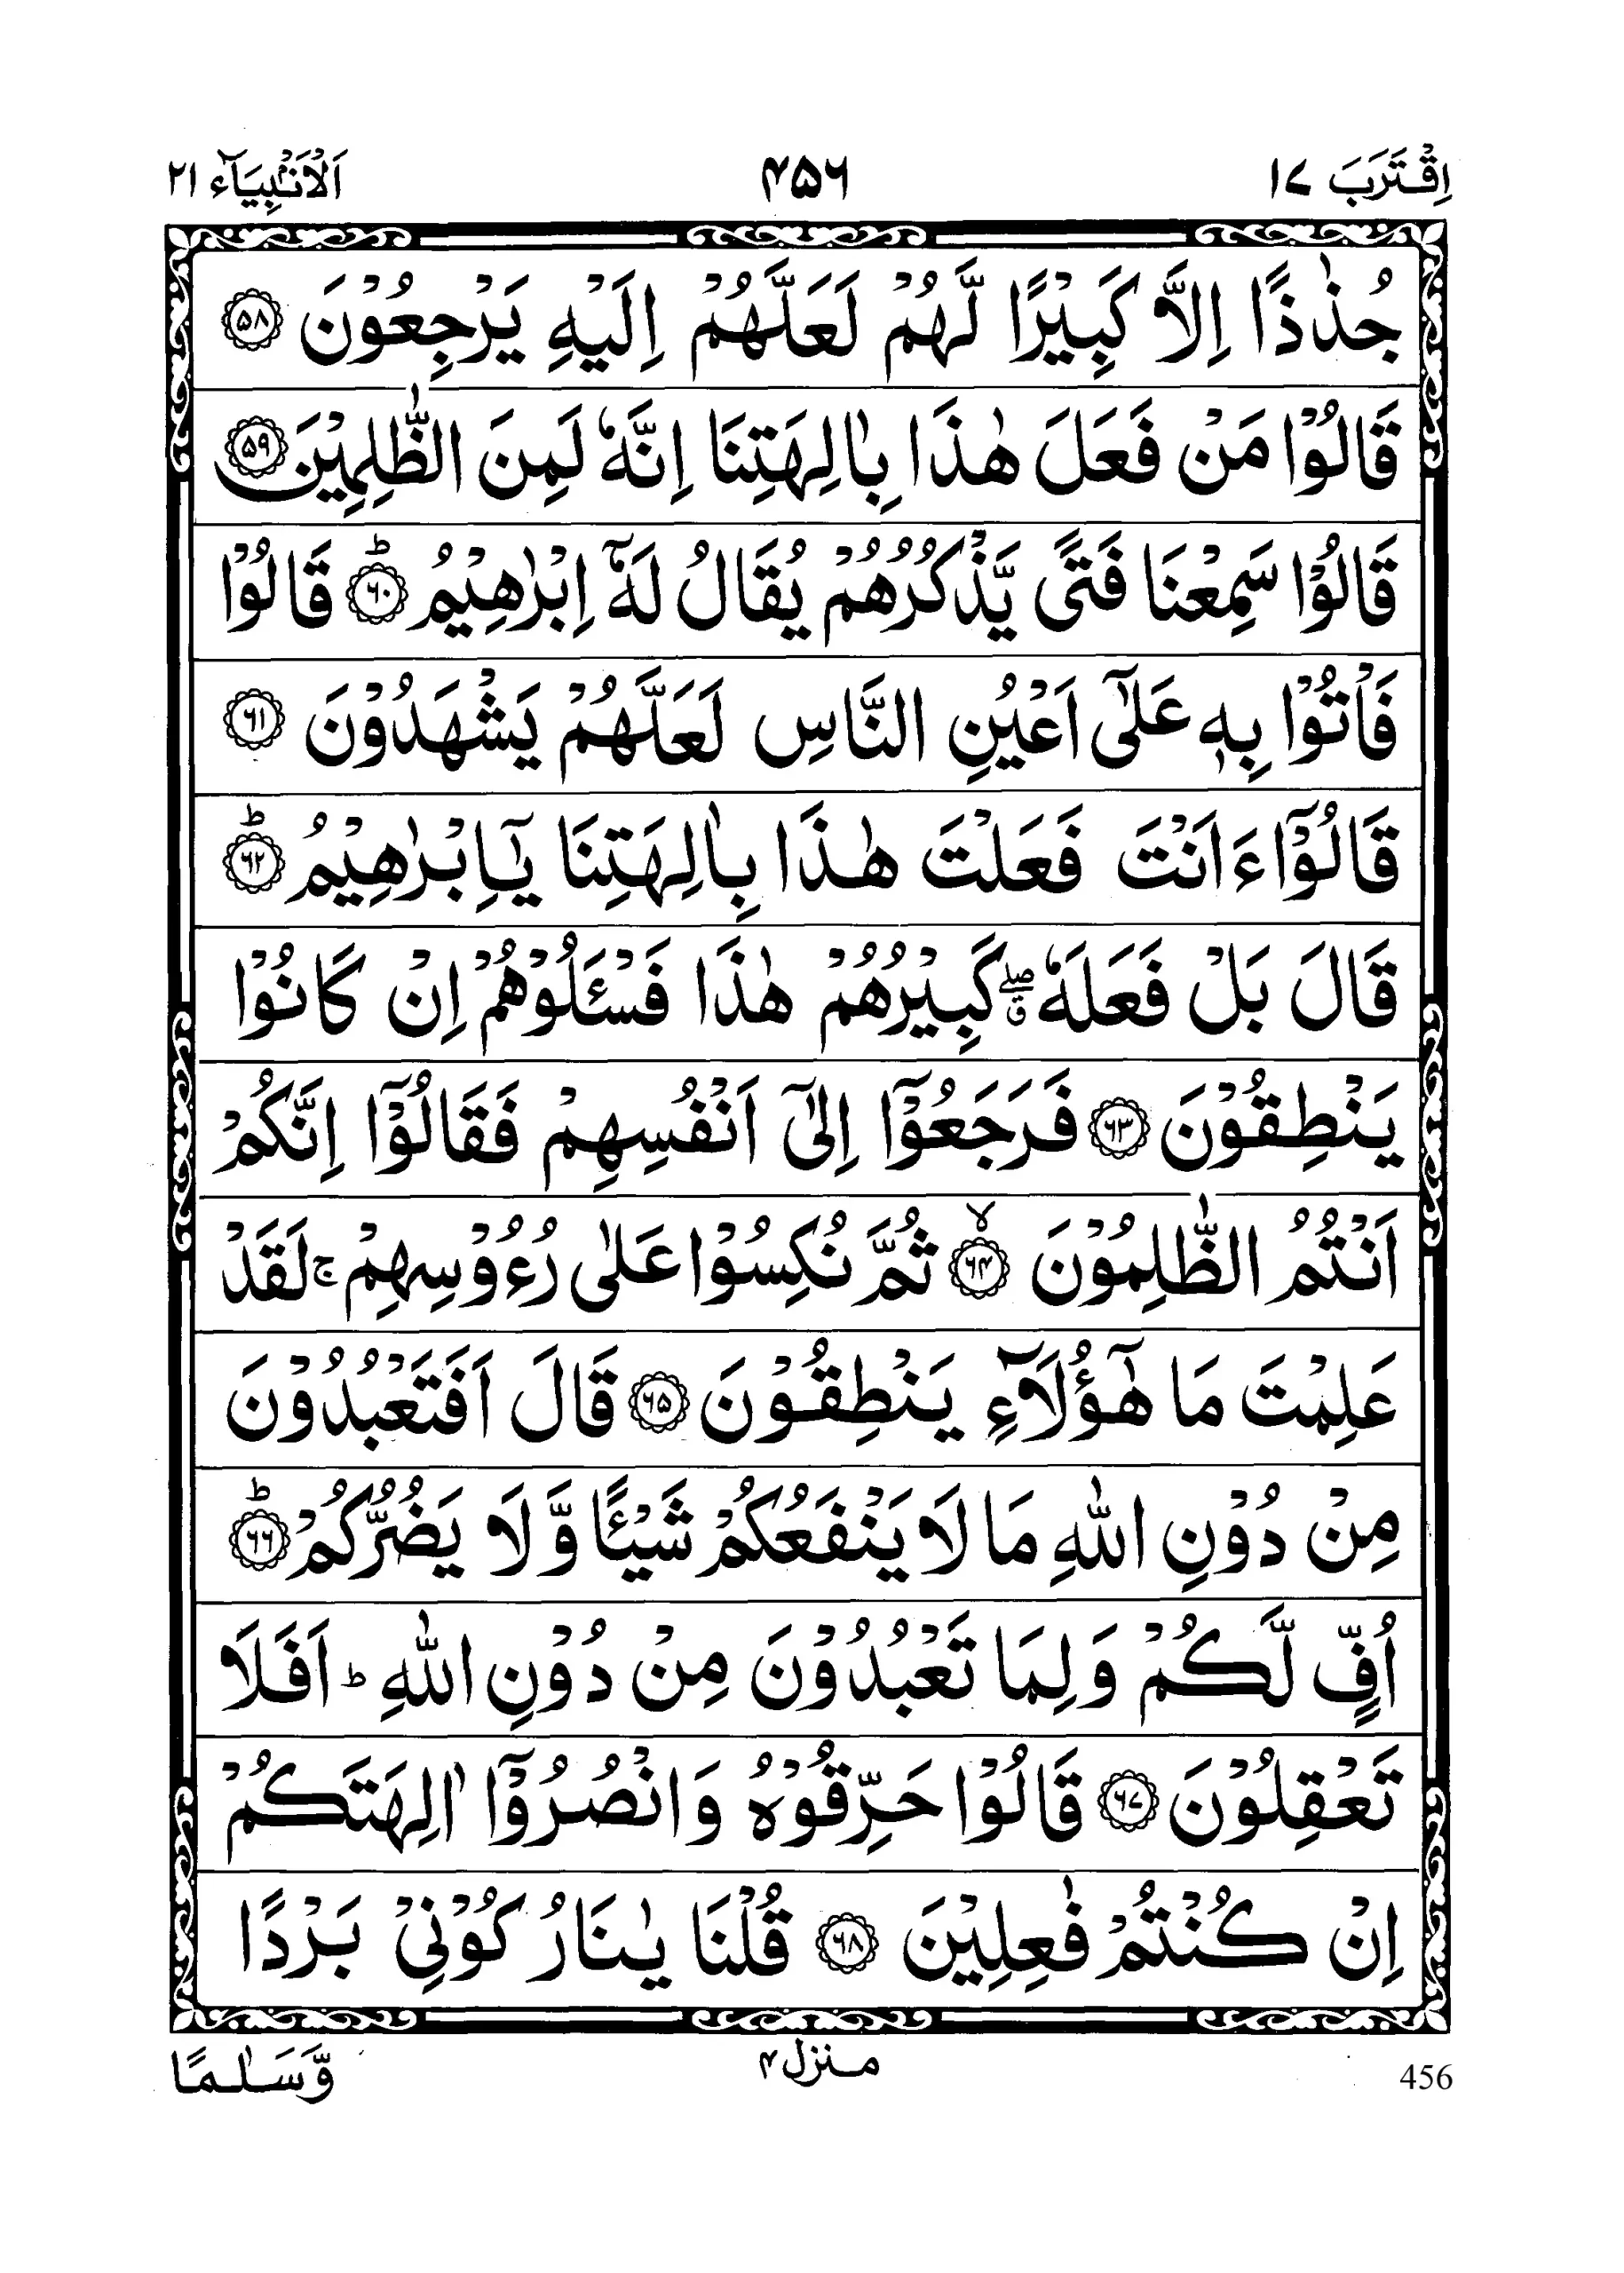 اِقْتَرَبَ ١٧
۴۵۶
اَلْاَنْۢبِيَآء ٢١
جُذٰذًا اِلَّا كَبِيْرًا لَّهُمْ لَعَلَّهُمْ اِلَيْهِ يَرْجِعُوْنَ ۵۸
قَالُوْا مَنْ فَعَلَ هٰذَا بِاٰلِهَتِنَا اِنَّهٗ لَمِنَ الظّٰلِمِيْنَ ۵۹
قَالُوْا سَمِعْنَا فَتًى يَّذْكُرُهُمْ يُقَالُ لَهٗۤ اِبْرٰهِيْمُ ؕ ۶۰ قَالُوْا
فَاْتُوْا بِهٖ عَلٰٓى اَعْيُنِ النَّاسِ لَعَلَّهُمْ يَشْهَدُوْنَ ۶۱
قَالُوْۤا ءَاَنْتَ فَعَلْتَ هٰذَا بِاٰلِهَتِنَا يٰۤاِبْرٰهِيْمُ ؕ ۶۲
قَالَ بَلْ فَعَلَهٗ ۖق كَبِيْرُهُمْ هٰذَا فَسْـَٔلُوْهُمْ اِنْ كَانُوْا
يَنْطِقُوْنَ ۶۳ فَرَجَعُوْۤا اِلٰٓى اَنْفُسِهِمْ فَقَالُوْۤا اِنَّكُمْ
اَنْتُمُ الظّٰلِمُوْنَ ۙ ۶۴ ثُمَّ نُكِسُوْا عَلٰى رُءُوْسِهِمْ ۚ لَقَدْ
عَلِمْتَ مَا هٰۤؤُلَآءِ يَنْطِقُوْنَ ۶۵ قَالَ اَفَتَعْبُدُوْنَ
مِنْ دُوْنِ اللّٰهِ مَا لَا يَنْفَعُكُمْ شَيْـًٔا وَّ لَا يَضُرُّكُمْ ؕ ۶۶
اُفٍّ لَّكُمْ وَلِمَا تَعْبُدُوْنَ مِنْ دُوْنِ اللّٰهِ ؕ اَفَلَا
تَعْقِلُوْنَ ۶۷ قَالُوْا حَرِّقُوْهُ وَانْصُرُوْۤا اٰلِهَتَكُمْ
اِنْ كُنْتُمْ فٰعِلِيْنَ ۶۸ قُلْنَا يٰنَارُ كُوْنِيْ بَرْدًا
456
منزل ۴
وَّسَلٰمًا